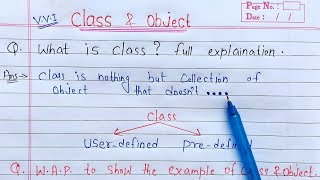 V.V.I Class & Object
Page No.:
Date: / /
Q. What is class? full explaination.
Ans→ Class is nothing but Collection of
Object that doesn't ....
Class
User-defined Pre-defined
Q. W.A.P. to show the example of class & Object.